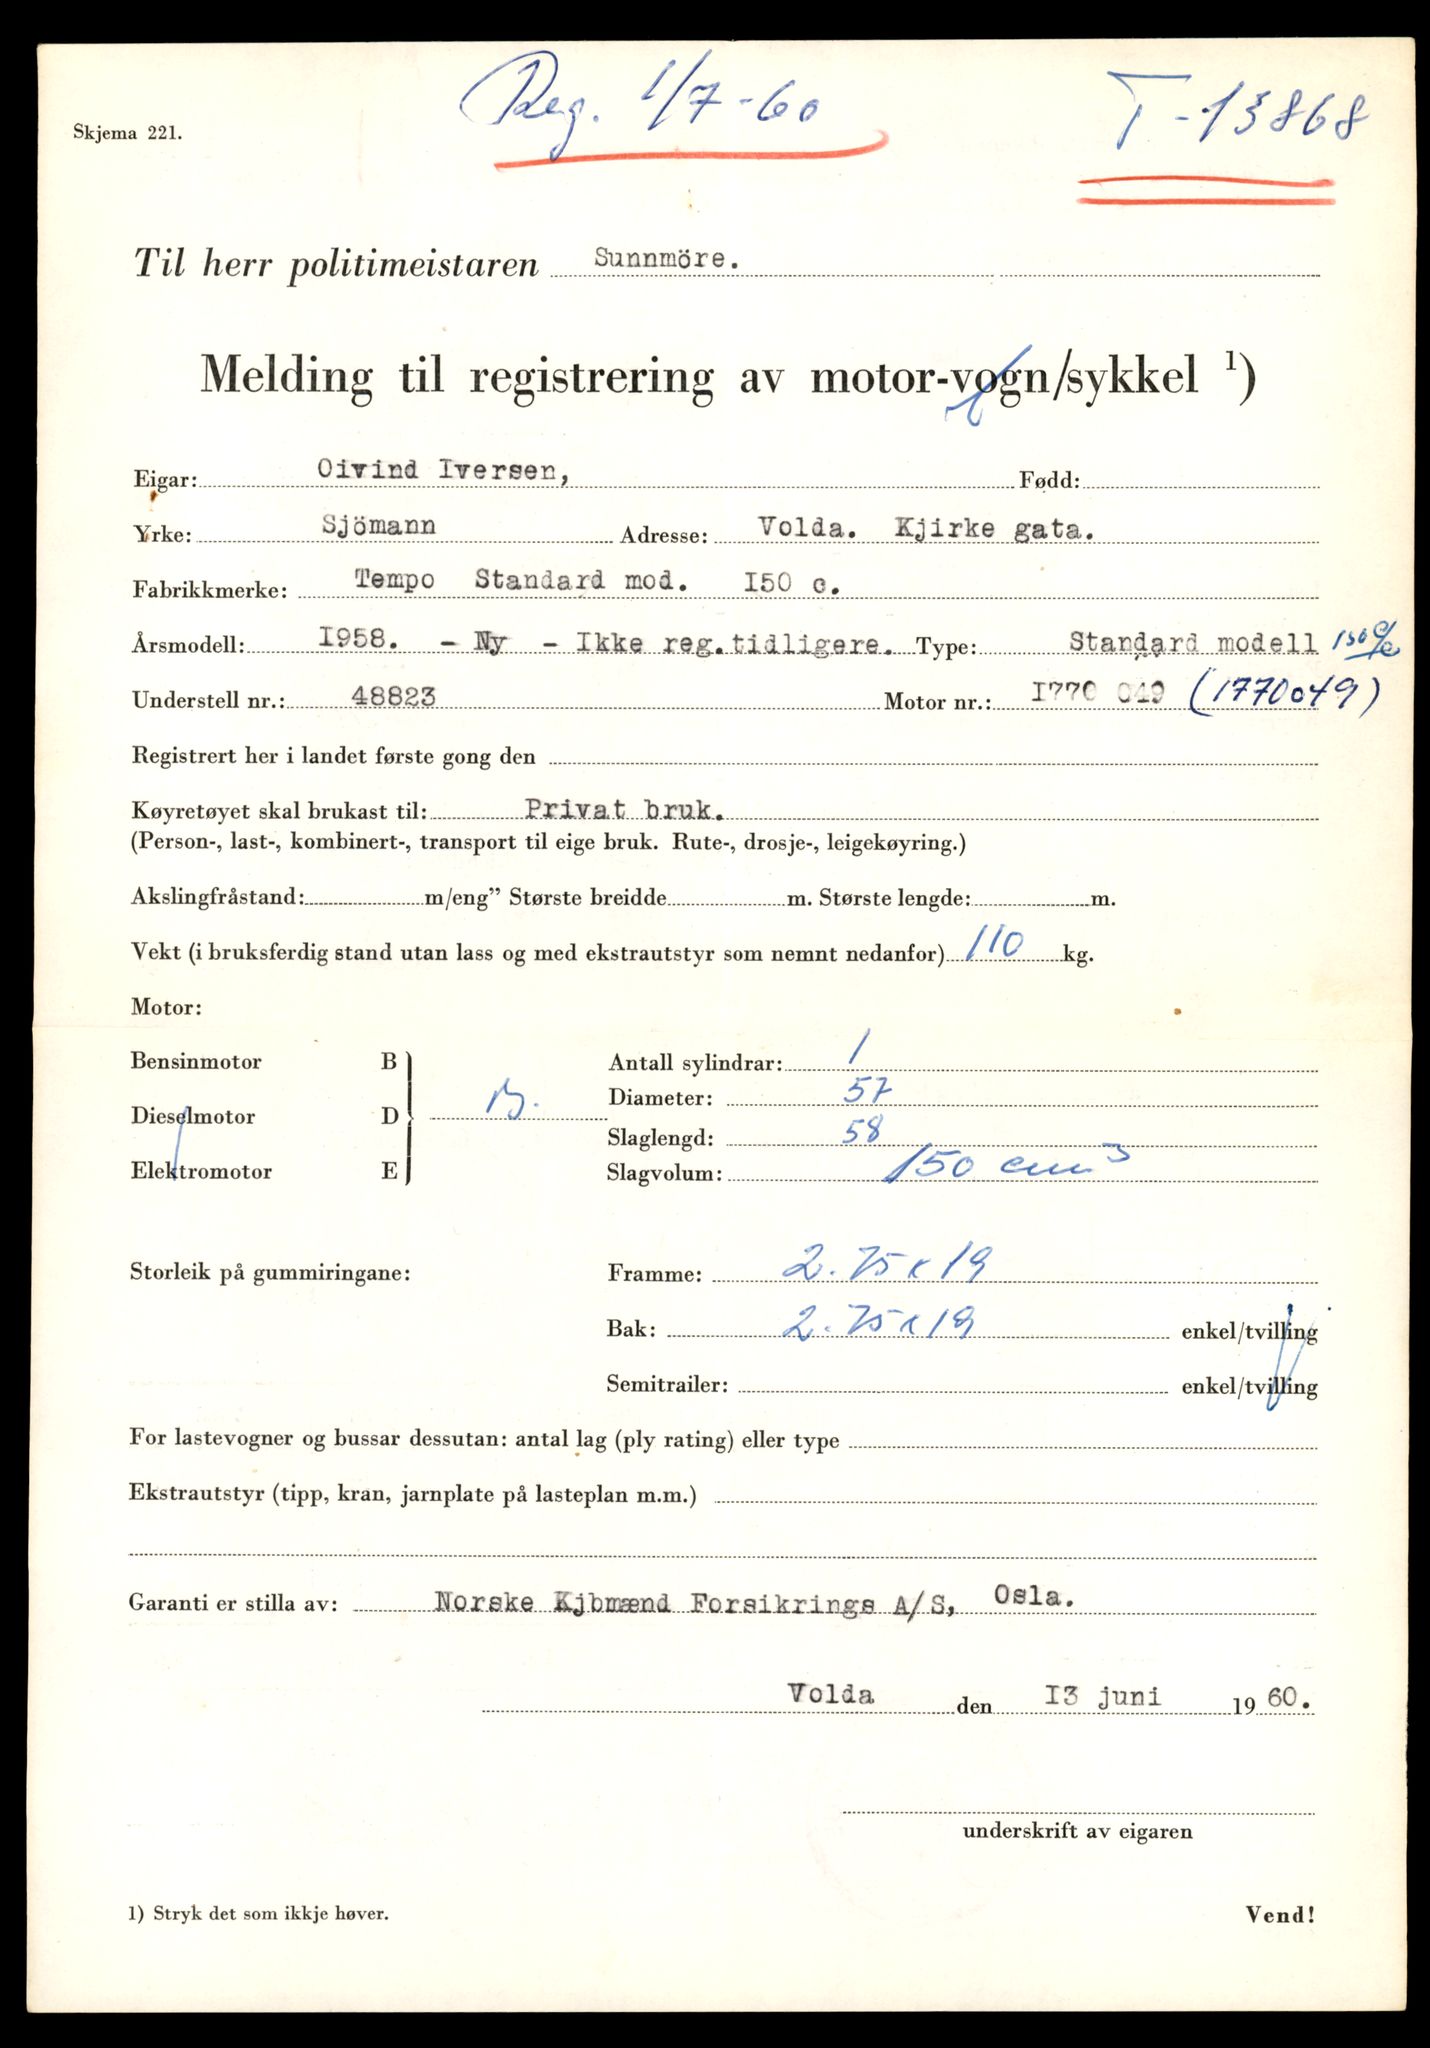 Reg. 1/7-60
T-13868
Skjema 221.
Til herr politimeistaren Sunnmöre.
Melding til registrering av motor-vogn/sykkel 1)
Eigar: Oivind Iversen, Fødd:
Yrke: Sjömann Adresse: Volda. Kjirke gata.
Fabrikkmerke: Tempo Standard mod. I50 c.
Årsmodell: I958. - Ny - Ikke reg.tidligere. Type: Standard modell 150 c/c
Understell nr.: 48823 Motor nr.: I770 049 (1770049)
Registrert her i landet første gong den
Køyretøyet skal brukast til: Privat bruk.
(Person-, last-, kombinert-, transport til eige bruk. Rute-, drosje-, leigekøyring.)
Akslingfråstand: m/eng” Største breidde m. Største lengde: m.
Vekt (i bruksferdig stand utan lass og med ekstrautstyr som nemnt nedanfor) 110 kg.
Motor:
Bensinmotor B Antall sylindrar: 1
Diameter: 57
Dieselmotor D B.
Slaglengd: 58
Elektromotor E Slagvolum: 150 cm³
Storleik på gummiringane: Framme: 2.75 x 19
Bak: 2.75 x 19 enkel/tvilling
Semitrailer: enkel/tvilling
For lastevogner og bussar dessutan: antal lag (ply rating) eller type
Ekstrautstyr (tipp, kran, jarnplate på lasteplan m.m.)
Garanti er stilla av: Norske Kjbmænd Forsikrings A/S, Osla.
Volda den I3 juni 19 60.
underskrift av eigaren
1) Stryk det som ikkje høver.
Vend!